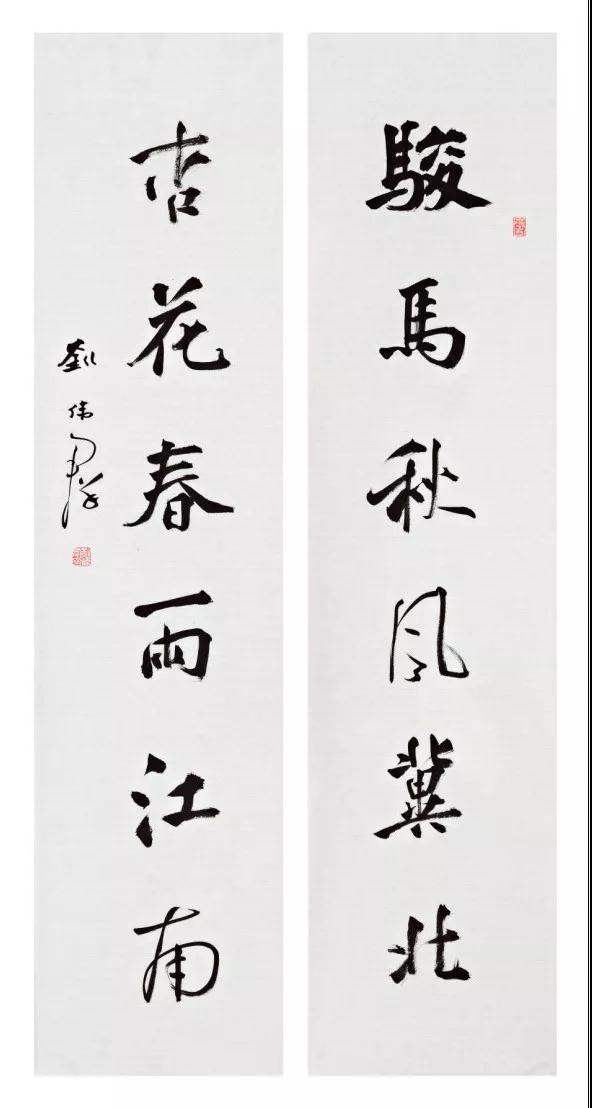 駿馬秋風冀北
杏花春雨江南
劉偉